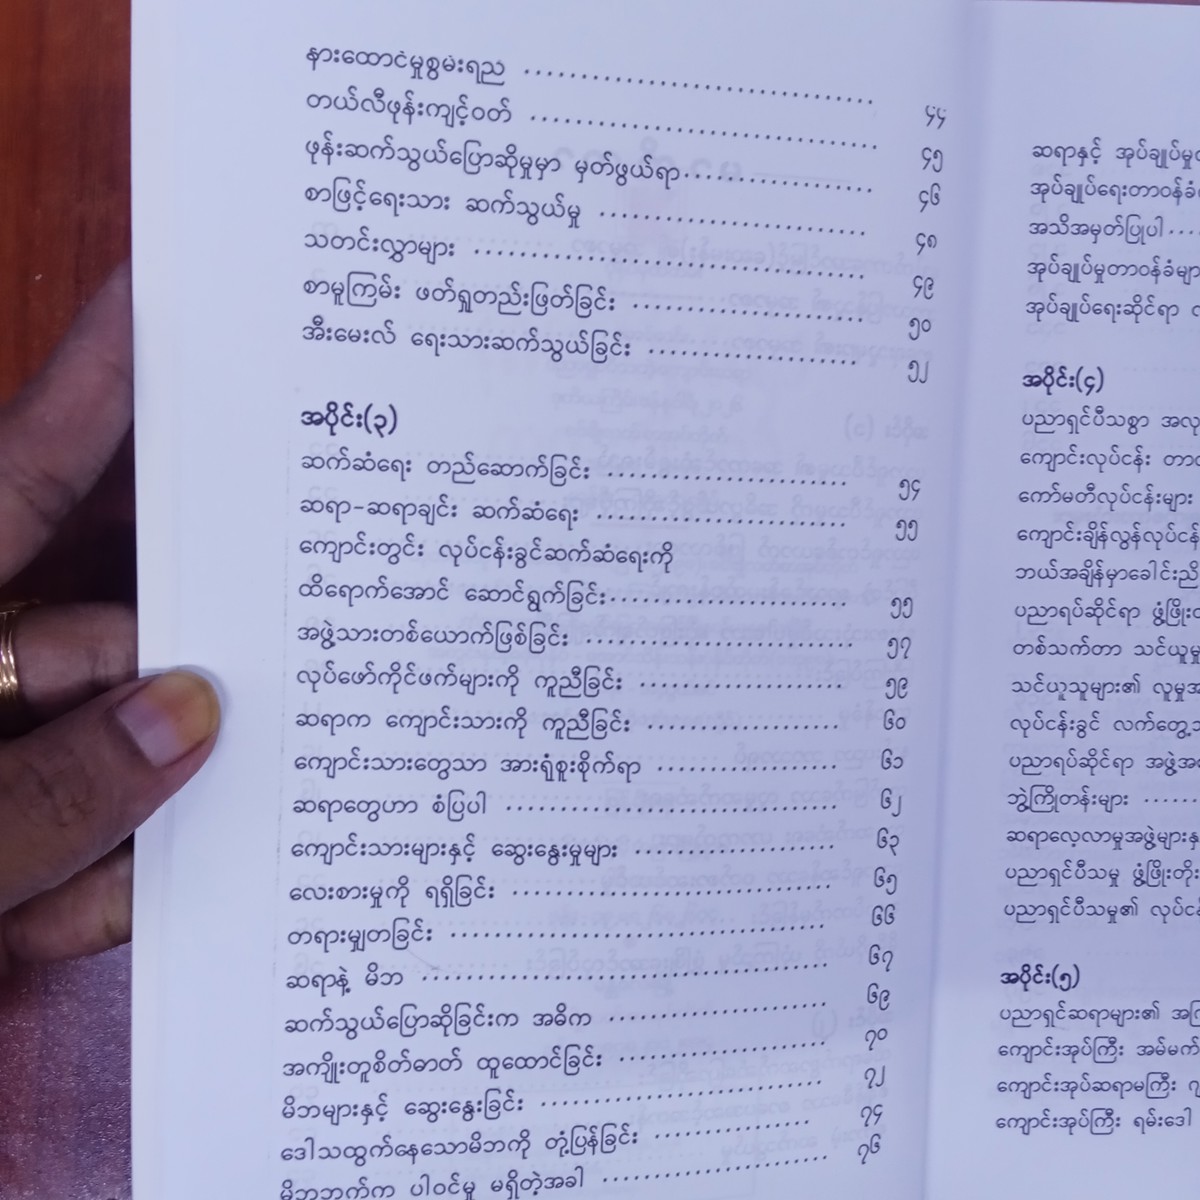 နားထောင်မှုစွမ်းရည ......................... ၄၄
တယ်လီဖုန်းကျင့်ဝတ် ......................... ၄၅
ဖုန်းဆက်သွယ်ပြောဆိုမှုမှာ မှတ်ဖွယ်ရာ................ ၄၆
စာဖြင့်ရေးသား ဆက်သွယ်မှု ................... ၄၈
သတင်းလွှာများ ............................ ၄၉
စာမူကြမ်း ဖတ်ရှုတည်းဖြတ်ခြင်း ................ ၅၀
အီးမေးလ် ရေးသားဆက်သွယ်ခြင်း ............... ၅၂
အပိုင်း(၃)
ဆက်ဆံရေး တည်ဆောက်ခြင်း ................ ၅၄
ဆရာ-ဆရာချင်း ဆက်ဆံရေး ................. ၅၅
ကျောင်းတွင်း လုပ်ငန်းခွင်ဆက်ဆံရေးကို
ထိရောက်အောင် ဆောင်ရွက်ခြင်း................ ၅၅
အဖွဲ့သားတစ်ယောက်ဖြစ်ခြင်း .................. ၅၇
လုပ်ဖော်ကိုင်ဖက်များကို ကူညီခြင်း .............. ၅၉
ဆရာက ကျောင်းသားကို ကူညီခြင်း ............. ၆၀
ကျောင်းသားတွေသာ အားရုံစူးစိုက်ရာ ............ ၆၁
ဆရာတွေဟာ စံပြပါ ...................... ၆၂
ကျောင်းသားများနှင့် ဆွေးနွေးမှုများ ............. ၆၃
လေးစားမှုကို ရရှိခြင်း ...................... ၆၅
တရားမျှတခြင်း .......................... ၆၆
ဆရာနဲ့ မိဘ ............................ ၆၇
ဆက်သွယ်ပြောဆိုခြင်းက အဓိက ............... ၆၉
အကျိုးတူစိတ်ဓာတ် ထူထောင်ခြင်း .............. ၇၀
မိဘများနှင့် ဆွေးနွေးခြင်း ................... ၇၂
ဒေါသထွက်နေသောမိဘကို တုံ့ပြန်ခြင်း ............ ၇၄
မိဘဘက်က ပါဝင်မှု မရှိတဲ့အခါ ................ ၇၆
ဆရာနှင့် အုပ်ချုပ်မှု
အုပ်ချုပ်ရေးတာဝန်ခံ
အသိအမှတ်ပြုပါ ....
အုပ်ချုပ်မှုတာဝန်ခံများ
အုပ်ချုပ်ရေးဆိုင်ရာ
အပိုင်း(၄)
ပညာရှင်ပီသစွာ
ကျောင်းလုပ်ငန်း
ကော်မတီလုပ်ငန်းများ
ကျောင်းချိန်လွန်လုပ်ငန်
ဘယ်အချိန်မှာခေါင်းညိ
ပညာရပ်ဆိုင်ရာ
တစ်သက်တာ သင်ယူမှု
သင်ယူသူများ၏
လုပ်ငန်းခွင်
ပညာရပ်ဆိုင်ရာ
ဘွဲ့ကြိုတန်းများ .......
ဆရာလေ့လာမှုအဖွဲ့များ
ပညာရှင်ပီသမှု ဖွံ့ဖြိုးတိုး
ပညာရှင်ပီသမှု၏
အပိုင်း(၅)
ပညာရှင်ဆရာများ၏
ကျောင်းအုပ်ကြီး
ကျောင်းအုပ်ဆရာမကြီး
ကျောင်းအုပ်ကြီး ရမ်းဒေါ